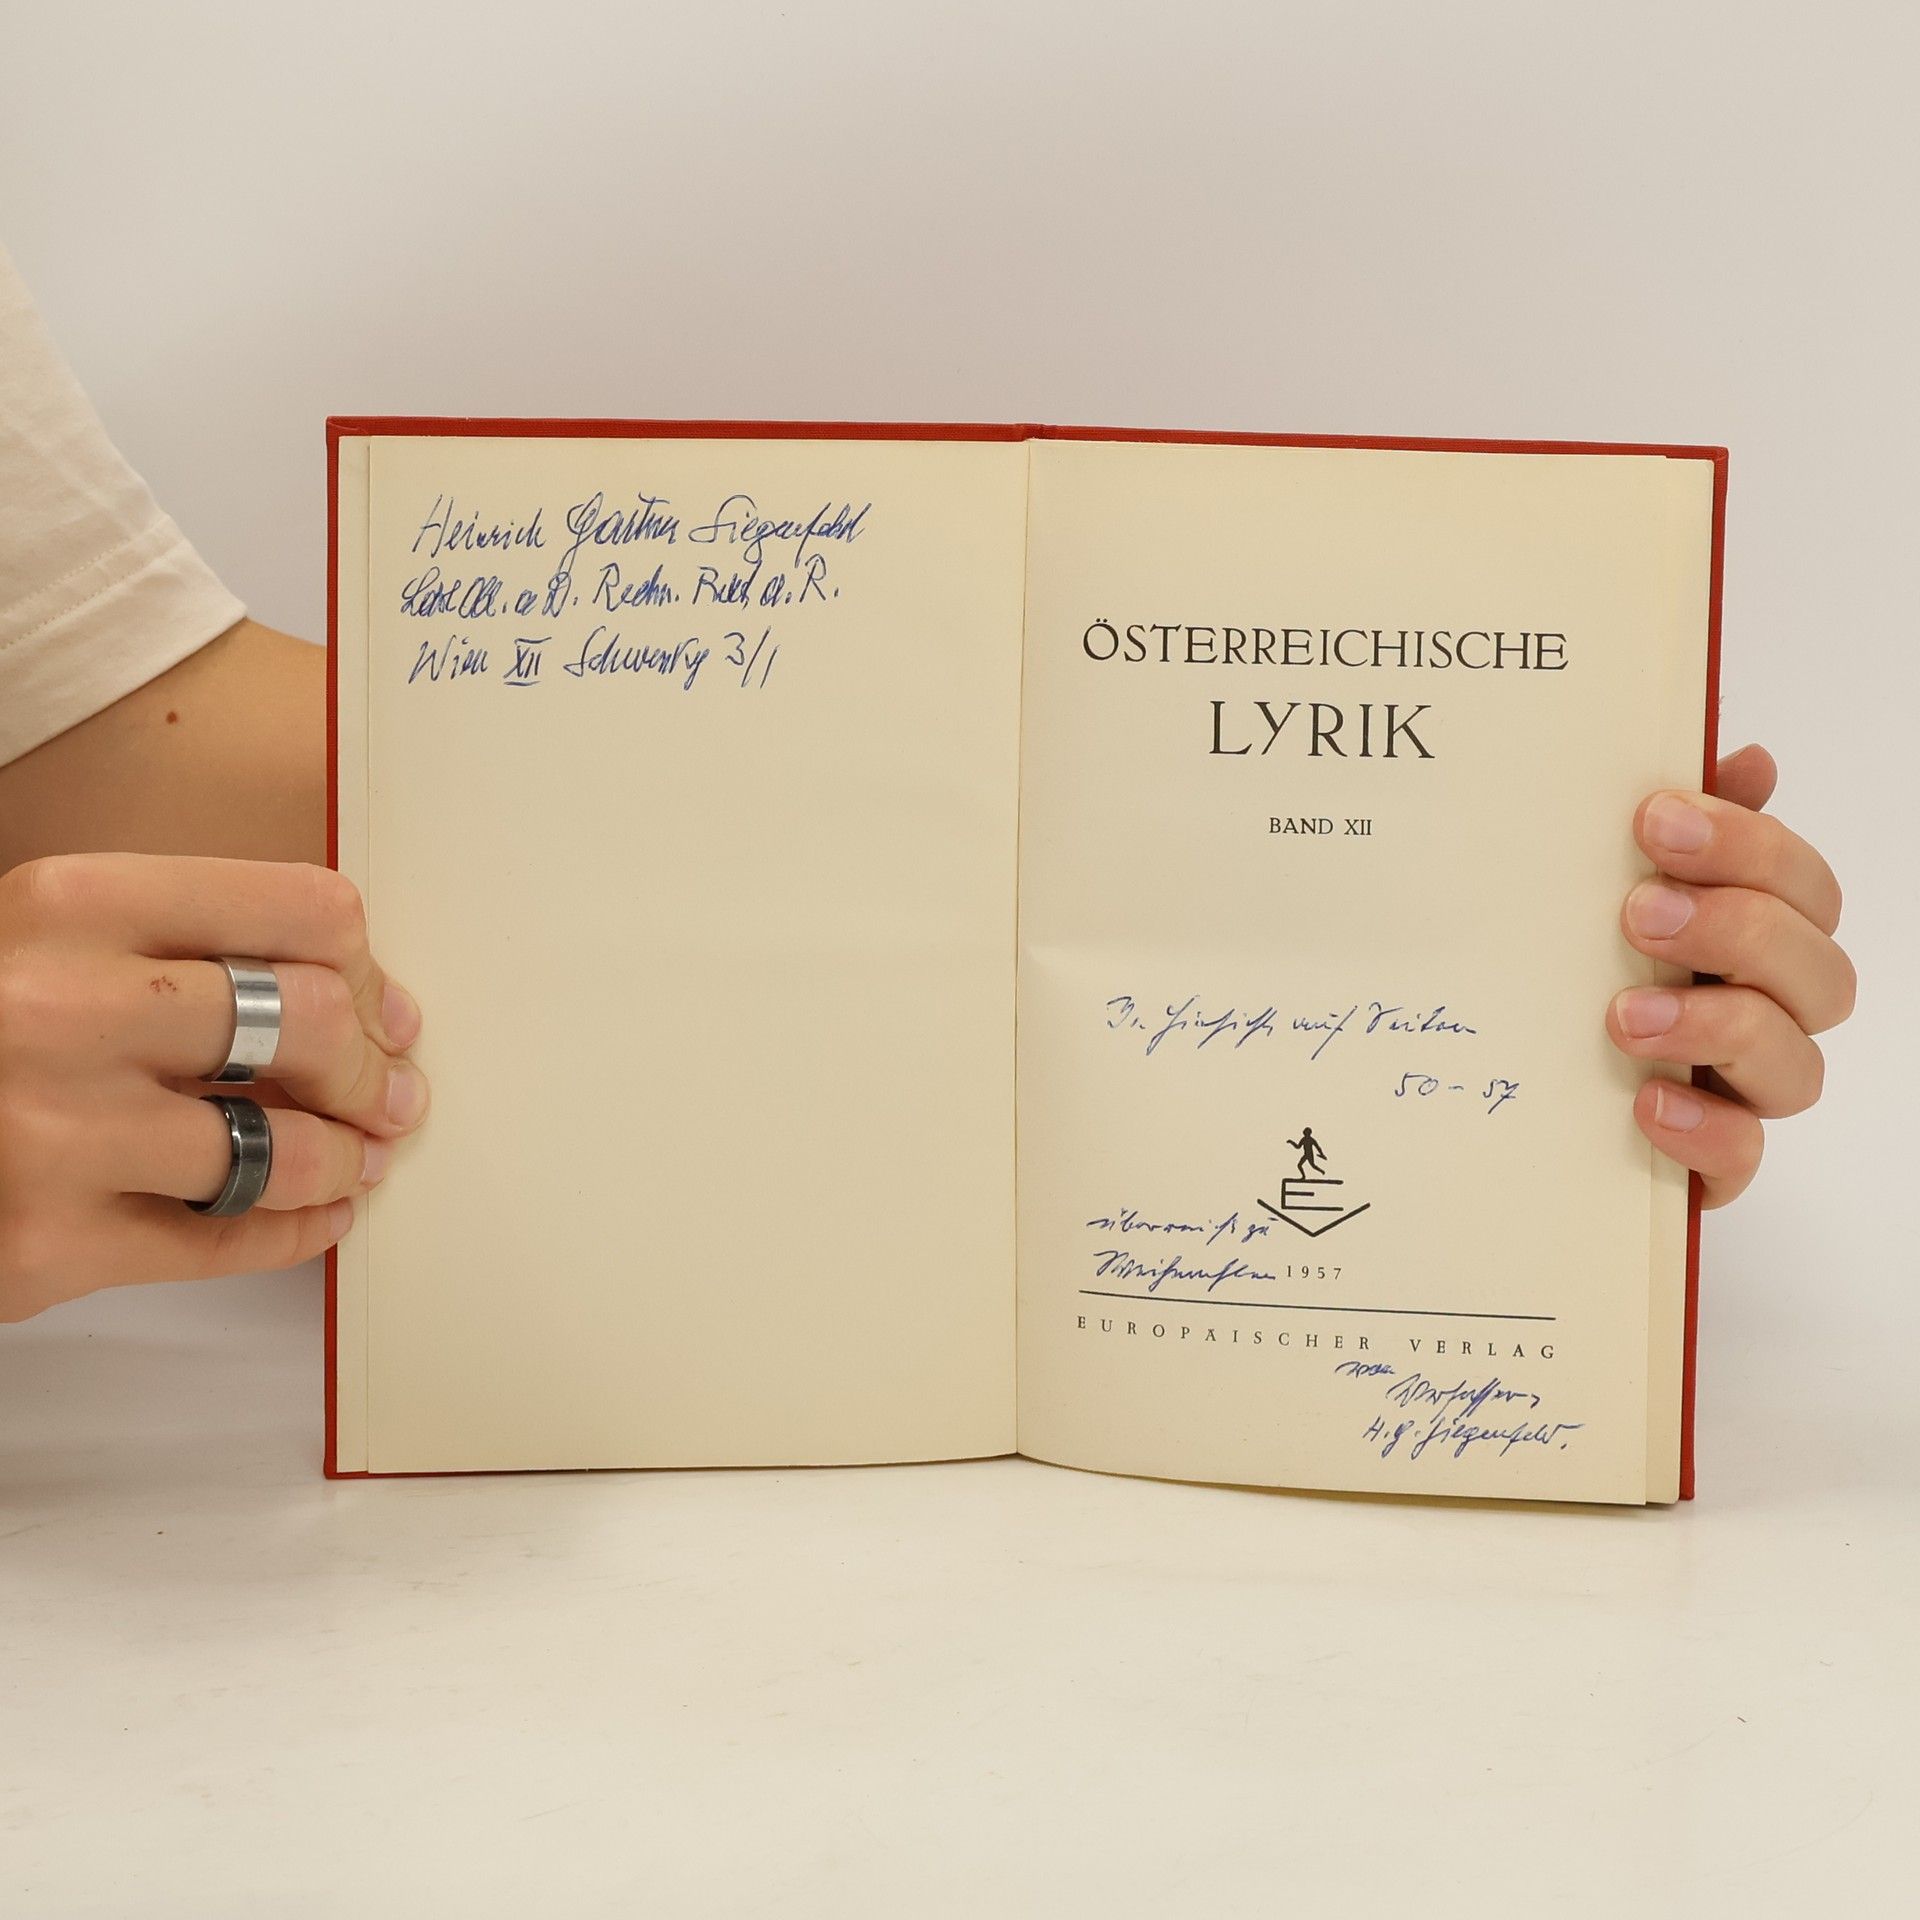 Heinrich Gartner Siegenfeld
a. D. Rechn. a. R.
Wien XII 3/1
ÖSTERREICHISCHE
LYRIK
BAND XII
In Hinsicht auf Seiten
50 - 57
E
überreicht zu
Weihnachten 1957
EUROPÄISCHER VERLAG
vom
Verfasser,
H. G. Siegenfeld.